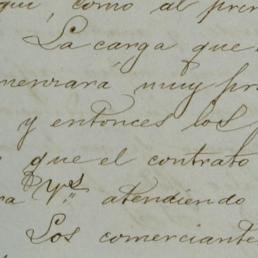 qui, como al prin
La carga que
menzará, muy pr
y entonces los
que el contrato
ra Vs. atendiendo
Los comerciante